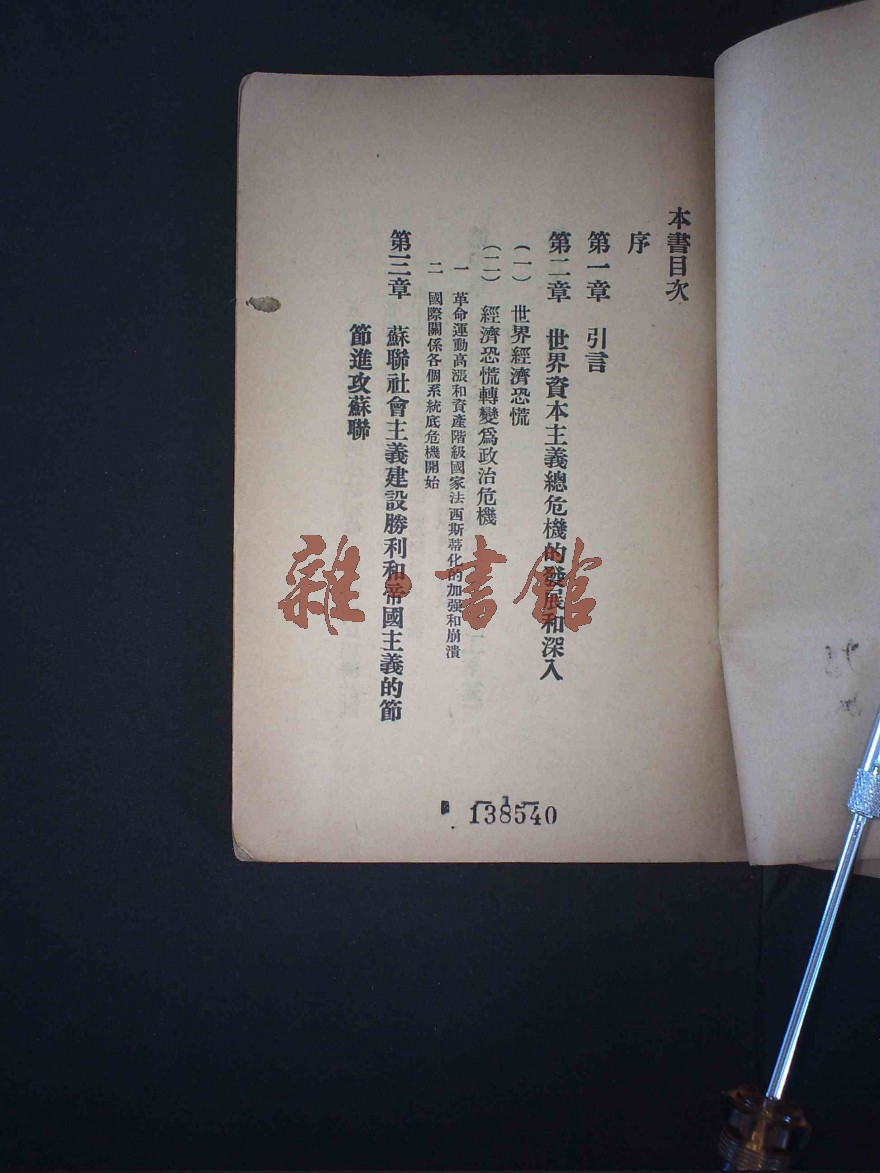 本書目次
序
第一章 引言
第二章 世界資本主義總危機的發展和深入
(一) 世界經濟恐慌
(二) 經濟恐慌轉變爲政治危機
一 革命運動高漲和資產階級國家法西斯蒂化的加强和崩潰
二 國際關係各個系統底危機開始
第三章 蘇聯社會主義建設勝利和帝國主義的節
節進攻蘇聯
— 1 —
138540
雜·書館